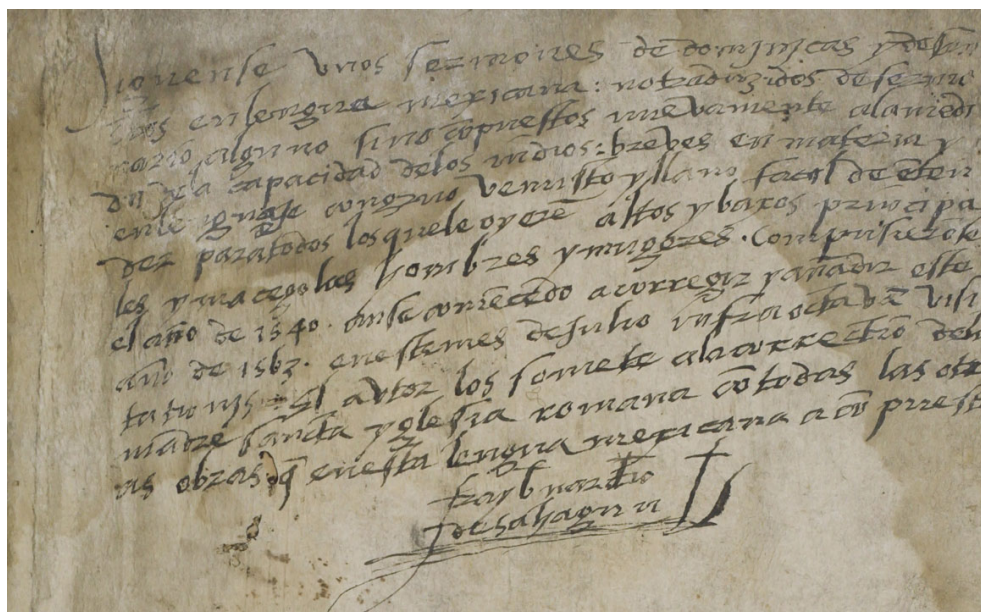 Siguense unos sermones de dominicas y de san
ctos en lengua mexicana: no traduzidos de sermo
nario alguno sino cõpuestos nuevamente a la medi
da de la capacidad de los indios: breves en materia y
en lenguaje congruo venusto y llano facil de ẽten
der para todos los que le oyerẽ altos y baxos principa
les y macegoales hombres y mugeres. Compusierõse
el año de 1540. anse comẽcado a corregir y añadir este
año de 1563. en este mes de Julio infraoctavã visi
tationis. El autor los somete a la correctiõ de la
madre sancta yglesia romana cõ todas las otr
as obras q̃ en esta lengua mexicana a cõpuesto
fray bnardío
de sahagun